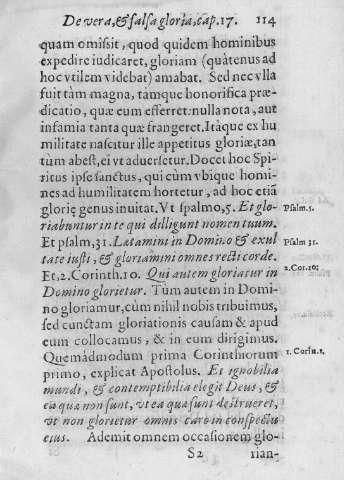 De vera, & falsa gloria, cap. 17. 114
quam omisit, quod quidem hominibus
expedire iudicaret, gloriam (quàtenus ad
hoc vtilem videbat) amabat. Sed nec vlla
fuit tàm magna, támque honorifica præ-
dicatio, quæ eum efferret: nulla nota, aut
infamia tanta quæ frangeret. Itàque ex hu
militate nascitur ille appetitus gloriæ, tan
tùm abest, ei vt aduersetur. Docet hoc Spi-
ritus ipse sanctus, qui cùm vbique homi-
nes ad humilitatem hortetur, ad hoc etiã
glorię genus inuitat. Vt psalmo, 5. Et glo-
Psalm. 5.
riabuntur in te qui diligunt nomen tuum.
Et psalm, 31. Lætamini in Domino & exul
Psalm 31.
tate iusti, & gloriamini omnes recti corde.
Et, 2. Corinth. 10. Qui autem gloriatur in
2. Cor. 10:
Domino glorietur. Tùm autem in Domi-
no gloriamur, cùm nihil nobis tribuimus,
sed cunctam gloriationis causam & apud
eum collocamus, & in eum dirigimus.
Quemàdmodum prima Corinthiorum
1. Corin. 1.
primo, explicat Apostolus. Et ignobilia
mundi, & contemptibilia elegit Deus, &
ea quæ non sunt, vt ea quæ sunt destrueret,
vt non glorietur omnis caro in conspectu
eius. Ademit omnem occasionem glo-
S2 rian-